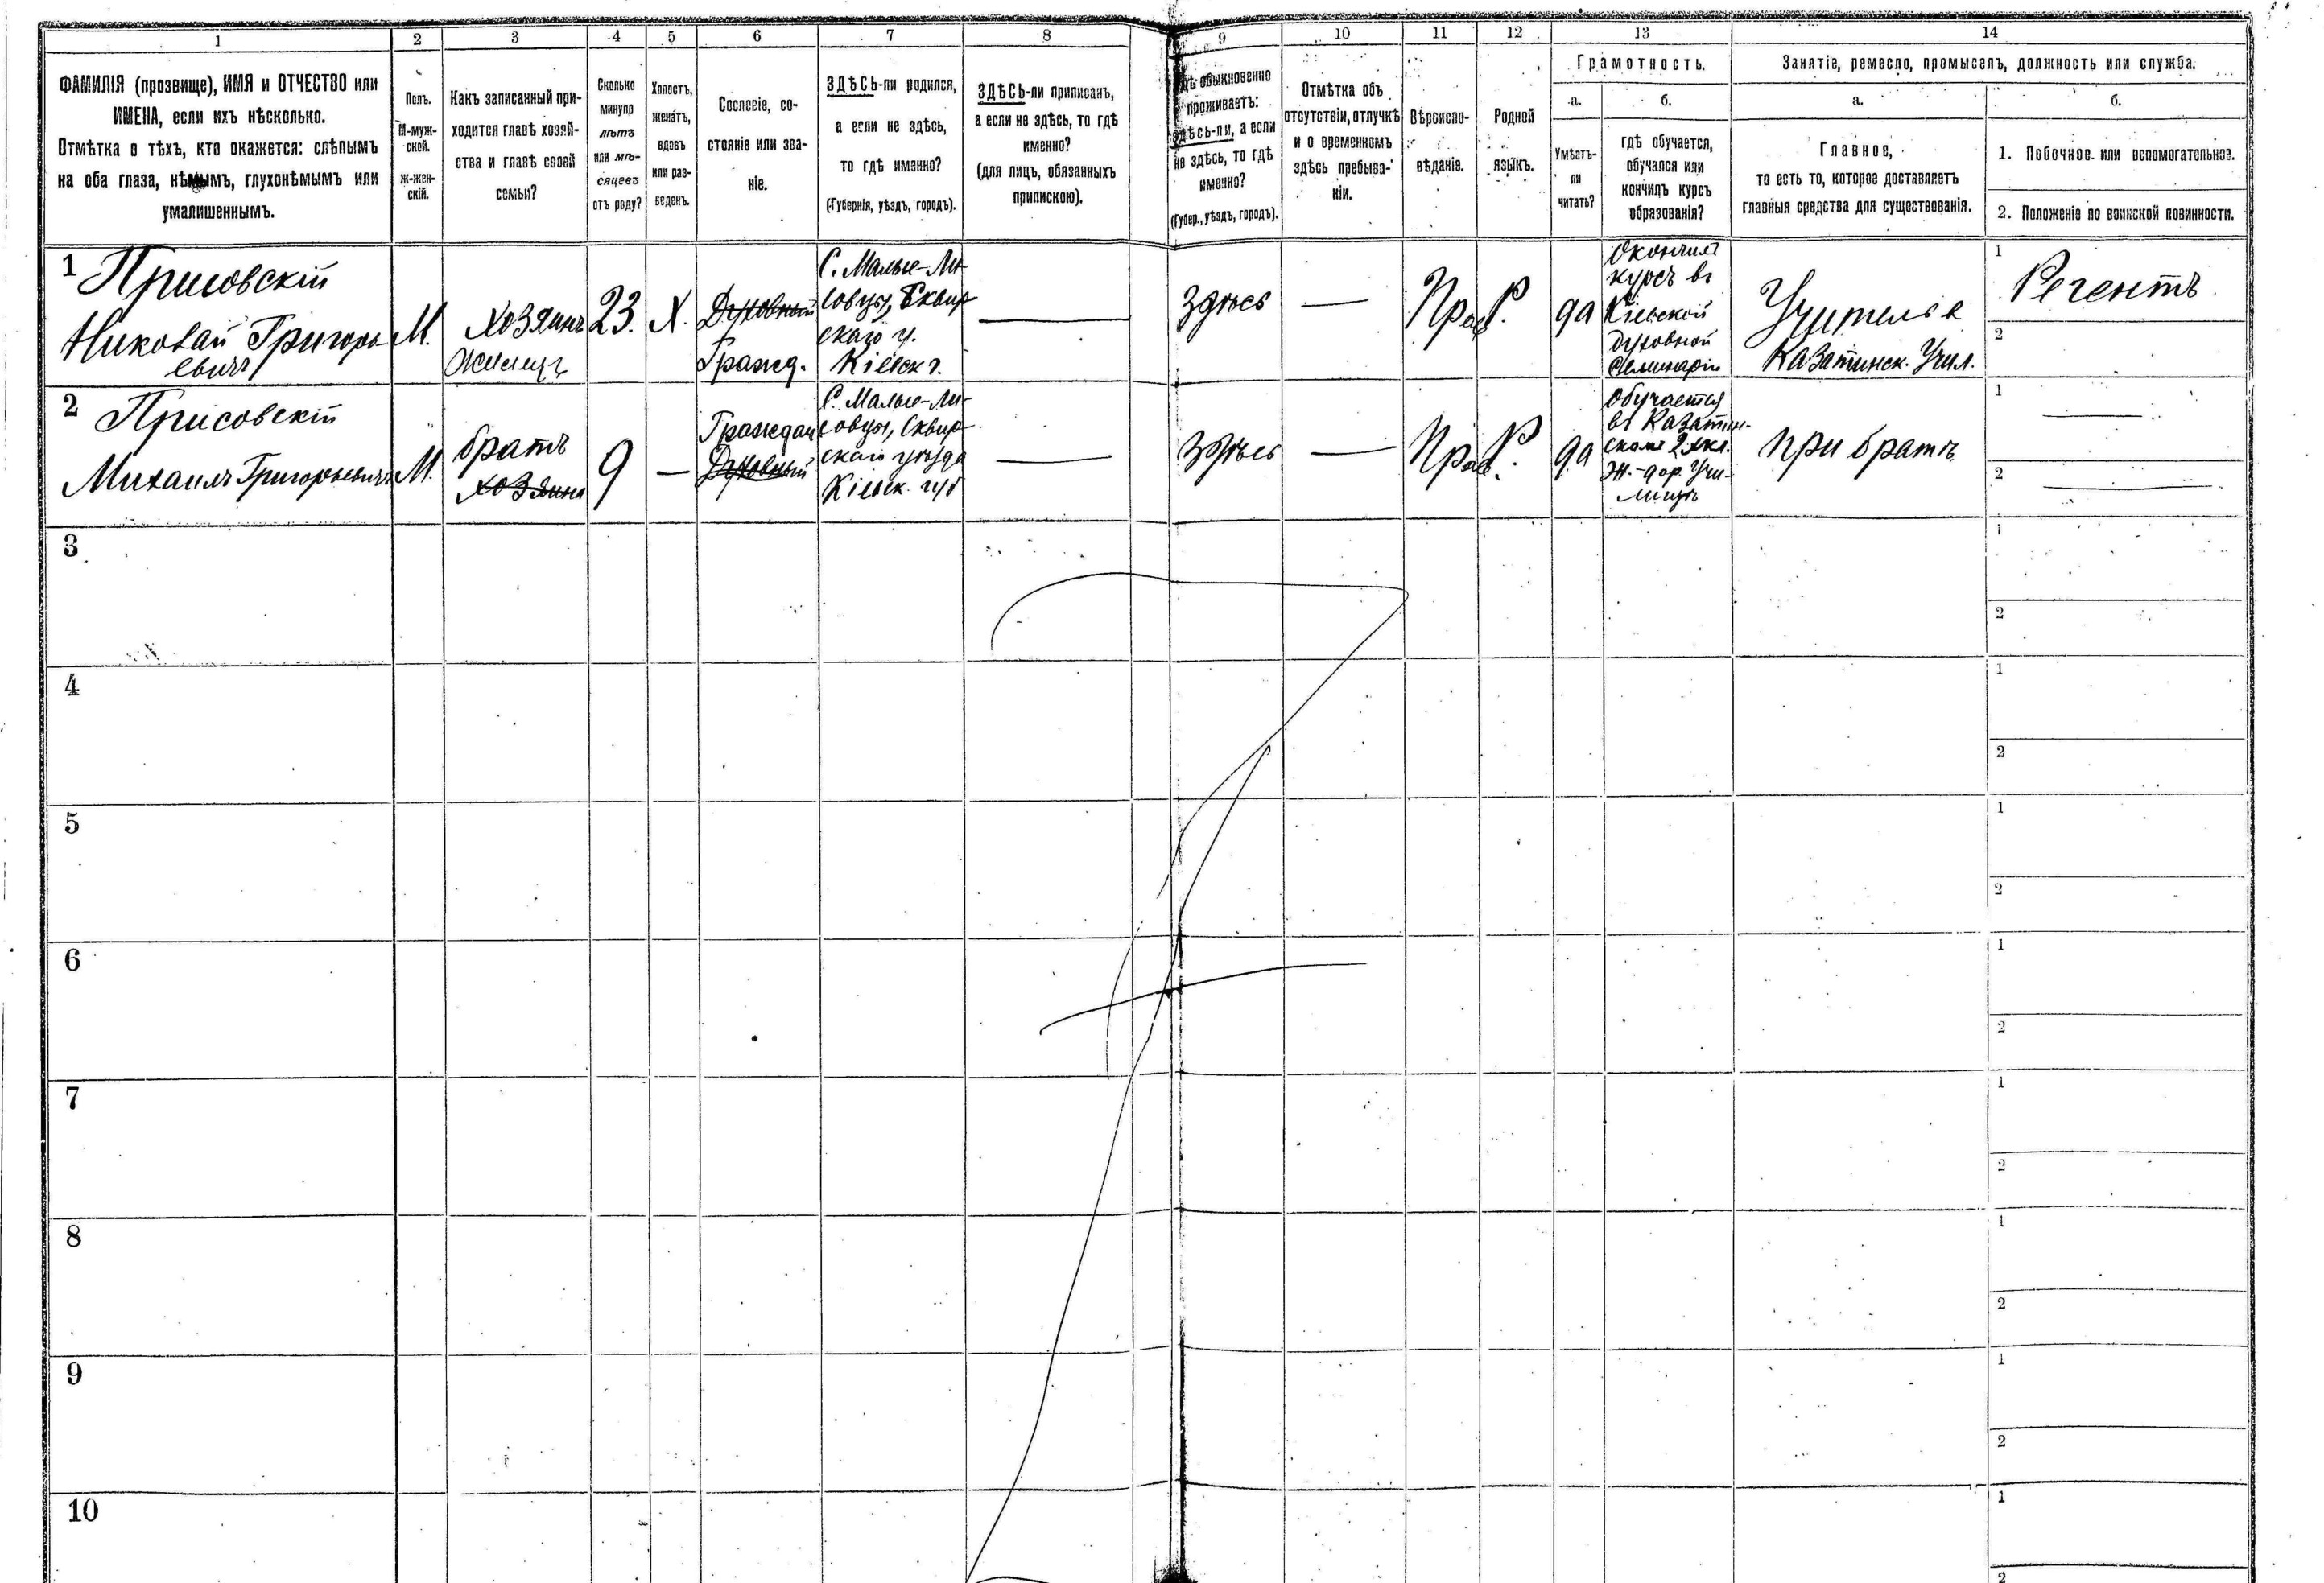 1 2 3 4 5 6 7 8 9 10 11 12 13 14
ФАМИЛІЯ (прозвище), ИМЯ и ОТЧЕСТВО или
ИМЕНА, если ихъ нѣсколько.
Отмѣтка о тѣхъ, кто окажется: слѣпымъ
на оба глаза, нѣмымъ, глухонѣмымъ или
умалишеннымъ.
Полъ.
М-муж-
ской.
Ж-жен-
скій.
Какъ записанный при-
ходится главѣ хозяй-
ства и главѣ своей
семьи?
Сколько
минуло
лѣтъ
или мѣ-
сяцевъ
отъ роду?
Холостъ,
женатъ,
вдовъ
или раз-
веденъ.
Сословіе, со-
стояніе или зва-
ніе.
ЗДѢСЬ-ли родился,
а если не здѣсь,
то гдѣ именно?
(Губернія, уѣздъ, городъ).
ЗДѢСЬ-ли приписанъ,
а если не здѣсь, то гдѣ
именно?
(для лицъ, обязанныхъ
припискою).
Гдѣ обыкновенно
проживаетъ:
здѣсь-ли, а если
не здѣсь, то гдѣ
именно?
(Губер., уѣздъ, городъ).
Отмѣтка объ
отсутствіи, отлучкѣ
и о временномъ
здѣсь пребыва-
ніи.
Вѣроиспо-
вѣданіе.
Родной
языкъ.
Грамотность.
а.
Умѣетъ-
ли
читать?
б.
гдѣ обучается,
обучался или
кончилъ курсъ
образованія?
Занятіе, ремесло, промыселъ, должность или служба.
а.
Главное,
то есть то, которое доставляетъ
главныя средства для существованія.
б.
1. Побочное или вспомогательное.
2. Положеніе по воинской повинности.
1
Присовскій
Николай Григорь
евичъ
М.
хозяинъ
Жилецъ
23.
Х.
Духовный
Гражд.
С. Малые-Ли
совцы, Сквир
скаго у.
Кіевск г.
здѣсь
Прав
Р.
да
Окончилъ
курсъ въ
Кіевской
духовной
Семинаріи
Учитель
Казатинск. Учил.
1
Регентъ
2
2
Присовскій
Михаилъ Григорьевичъ
М.
братъ
хозяина
9
Граждан
Духовный
С. Малые-Ли-
совцы, Сквир
скаго уѣзда
Кіевск. губ
здѣсь
Прав.
Р.
да
Обучается
въ Казатин-
скомъ 2хкл.
Ж.-дор. Учи-
лищѣ
при братѣ
1
2
3
1
2
4
1
2
5
1
2
6
1
2
7
1
2
8
1
2
9
1
2
10
1
2